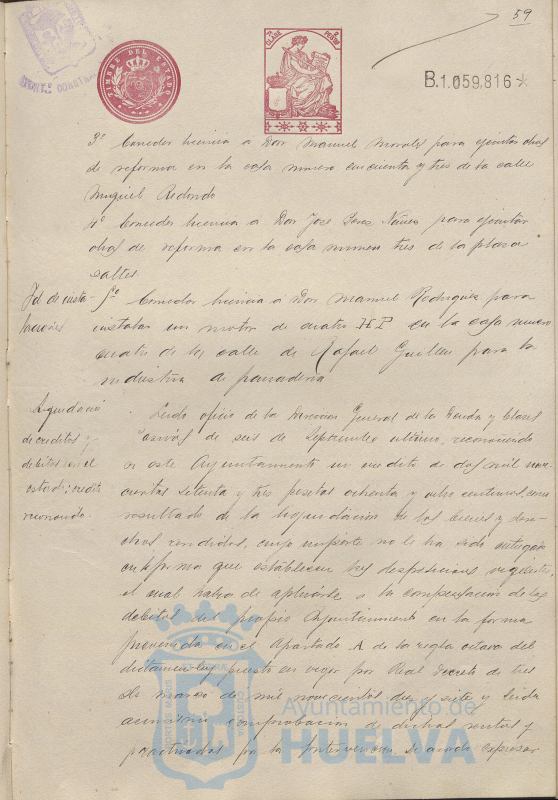 59
TIMBRE DEL ESTADO
7ª CLASE 2 PESETAS
B.1.059.816*
3º Conceder licencia a Don Manuel Morales para ejecutar obras
de reforma en la casa numero cincuenta y tres de la calle
Miguel Redondo
4º Conceder licencia a Don Jose Perez Nuñez para ejecutar
obras de reforma en la casa numero tres de la plaza
Saltes
Id. de insta-
laciones
5º Conceder licencia á Don Manuel Rodriguez para
instalar un motor de cuatro HP en la casa numero
cuatro de la calle de Rafael Guillen para la
industria de panaderia
Liquidacion
de creditos y
debitos con el
Estado: credito
reconocido.
Leido oficio de la Direccion General de la Deuda y Clases
Pasivas de seis de Septiembre ultimo, reconociendo
a este Ayuntamiento un credito de dos mil nove-
cientas setenta y tres pesetas ochenta y ocho centimos, como
resultado de la liquidacion de los bienes y dere-
chos vendidos, cuyo importe no le ha sido entregado
en la forma que establecen las disposiciones vigentes,
el cual habra de aplicarse a la compensacion de los
debitos del propio Ayuntamiento en la forma
prevenida en el Apartado A de la regla octava del
dictamen ley puesto en vigor por Real Decreto de tres
de marzo de mil novecientos diez y siete y leida
comprobacion de dichas rentas y
practicadas por la Intervencion, se acordo expresar
Ayuntamiento de
HUELVA